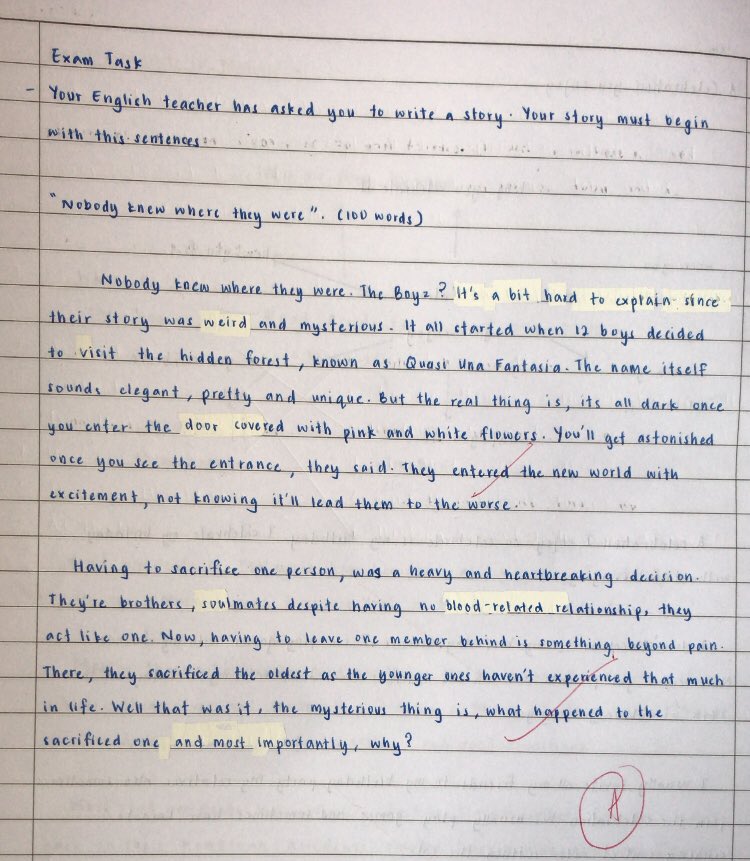 Exam Task
- Your English teacher has asked you to write a story. Your story must begin
with this sentences
"Nobody knew where they were". (100 words)
Nobody knew where they were. The Boyz? It's a bit hard to explain since
their story was weird and mysterious. It all started when 12 boys decided
to visit the hidden forest, known as Quasi Una Fantasia. The name itself
sounds elegant, pretty and unique. But the real thing is, its all dark once
you enter the door covered with pink and white flowers. You'll get astonished
once you see the entrance, they said. They entered the new world with
excitement, not knowing it'll lead them to the worse.
Having to sacrifice one person, was a heavy and heartbreaking decision.
They're brothers, soulmates despite having no blood-related relationship, they
act like one. Now, having to leave one member behind is something beyond pain.
There, they sacrificed the oldest as the younger ones haven't experienced that much
in life. Well that was it, the mysterious thing is, what happened to the
sacrificed one and most importantly, why?
A